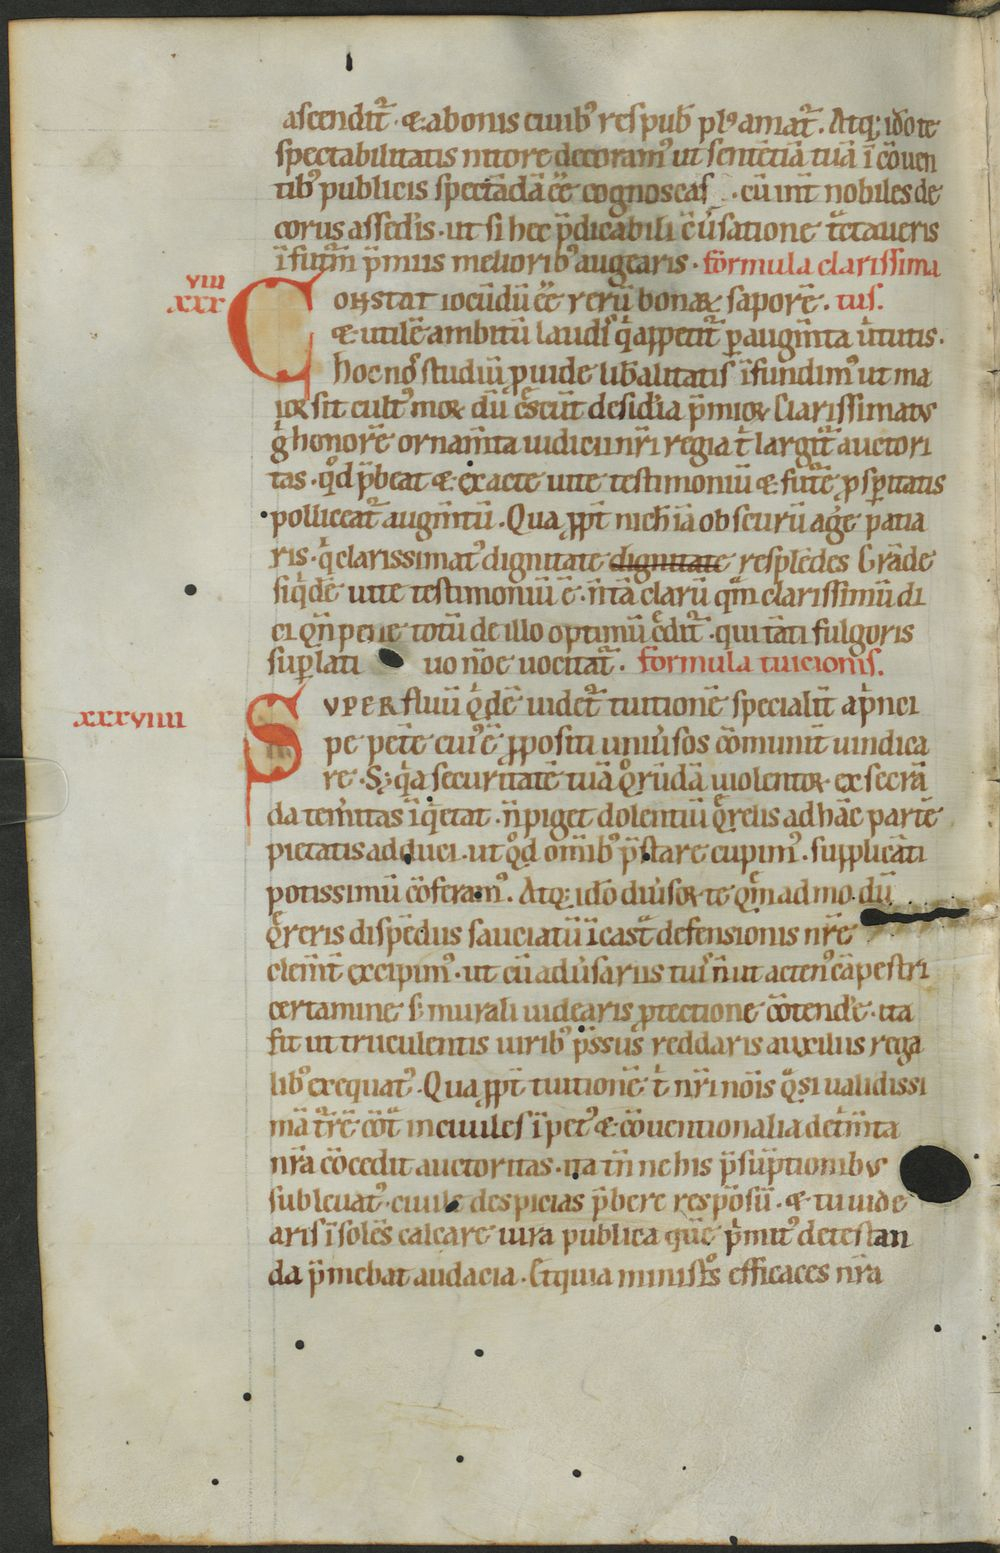 ascendit᷑· & a bonis ciuib᷒ res pub̅ pl᷒ amat᷑. Atq; ido te
spectabilitatis nitore decoram᷒ ut sentētiā tuā ī cōuen
tib᷒ publicis spectādā ēē cognoscas · cū int̄ nobiles de
corus assedis · ut si hec p̄dicabili c̄u͛satione t̄ctaueris
ī futur̄ p̄miis meliorib᷒ augearis · formula clarissima
VIII
XXX
Constat iocūdū ēē rerū bonaꝝ saporē. tus.
& utilē ambitū laudis q̇ appetit᷑ ꝑ augm̄ta u͛tutis.
hoc nr̄o studiū ꝓuide lib͛alitatis īfundim᷒ ut ma
ioꝝ sit cult᷒ moꝝ dū c͛scūt desid͛ia p̄mioꝝ Clarissimat᷒
g̊ honorē ornam̄ta iudicii nr̄i regia ṫ largit᷑ auctori
tas · qd̊ p̄beat & exacte uite testimoniū & fut᷑e ꝓsꝑitatis
polliceat᷑ augm̄tū. Qua ꝓpt̄ nichil iā obscurū ag͛e patia
ris · q̇ clarissimat᷒ dignitate dignitate resplēdes Grāde
siq̇dē uite testimoniū ē · n̄ tā clarū qm̄ clarissimū di
ci qn̄ pene totū de illo optimū c͛dit᷑ · qui tāti fulgoris
suꝑlati uo nōe uocitat᷑. formula tuicionis.
XXXVIIII
Superfluū q̇dē uidet᷑ tuitionē specialit̄ a ṗnci
pe pet͛e cui᷒ ē ꝓpositi uniu͛sos cōmunit̄ uindica
re · S; q̇a securitatē tuā q̊rūdā uiolentoꝝ exsecrā
da tem͛itas īq̇etat · n̄ piget dolentiū q͛relis ad hāc partē
pietatis adduci · ut qd̊ omīb᷒ p̄stare cupim᷒ · supplicāti
potissimū cōferam᷒. Atq; ido diu͛soꝝ te qm̄ad mo.dū
q͛reris dispēdiis sauciatū ī cast͛ defensionis nr̄e
clem̄t̄ excipim᷒ · ut cū adu͛sariis tuis n̄ ut acten᷒ cāpestri
certamine s; murali uidearis ꝓtectione cōtend͛e · ita
fit ut truculentis uirib᷒ p̄ssus reddaris auxiliis rega
lib᷒ exequat᷒. Qua ꝓpt̄ tuitionē ṫ nr̄i nōis q͛si ualidissi
mā t᷑rē cōt͛ inciuiles īpet᷒ & cōuentionalia detm̄ta
nr̄a cōcedit auctoritas · ita tn̄ ne his p̄sūptionibus
subleuat᷒ · ciuile despicias p̄bere respōsū · & tu uide
aris īsolēs calcare iura publica quē ṗmit᷒ detestan
da p̄mebat audacia · Et quia ministr̊s efficaces nr̄a